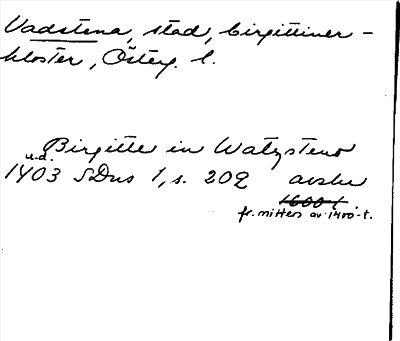 Vadstena, stad, birgittiner-
kloster, Österg. l.
Birgitte in Watzstens
u.d.
1403 SDns 1, s. 202 avskr
1600 t.
fr. mitten av 1400-t.